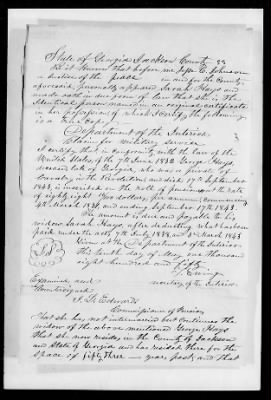 State of Georgia Jackson County SS
Be it known that before me C. Johnson
a Justice of the peace in and for the County
aforesaid, personally appeared Sarah Hays and
made oath in due form of law that she is the
identical person named in an original certificate
in her possession of which I certify the following
is a true copy
Department of the Interior
Claim for military service
I certify that in conformity with the law of the
United States, of the 7th June 1832 George Hays,
deceased late of Georgia, who was a private of
Cavalry in the Revolution and died 17th September
1843, is inscribed on the roll of pensions at the rate
of eighty eight Dollars, per annum commencing
4th March 1831, and ending September 17th 1843.
The amount is due and payable to his
widow Sarah Hays after deducting what has been
paid under the acts 7th July 1838, and 3d March 1843
Given at the Department of the Interior
this tenth day of May one thousand
eight hundred and fifty
T. Ewing
Secretary of the Interior
Examined and
Countersigned
J. L. Edwards
Commissioner of Pensions
That she has not intermarried but continues the
widow of the above mentioned George Hays
that she now resides in the County of Jackson
and State of Georgia and has resided there for the
space of fifty three years past and that